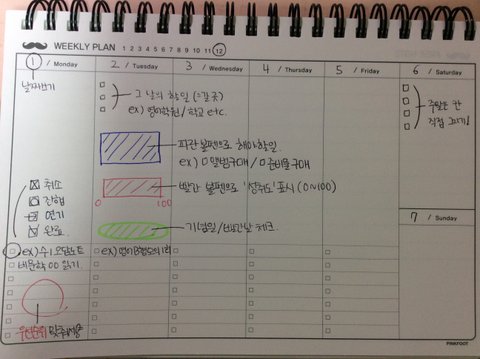 WEEKLY PLAN 1 2 3 4 5 6 7 8 9 10 11 12
1 / Monday
2 / Tuesday
3 / Wednesday
4 / Thursday
5 / Friday
6 / Saturday
날짜쓰기
그 날의 할일 (=갈 곳)
ex) 영어학원 / 학교 etc.
주말은 칸
직접 그리기!
파란볼펜으로 해야할일.
ex) 구매 / 준비물구매
빨간 볼펜으로 '성취도' 표시 (0~100)
0 100
취소
진행
연기
완료
기념일 / 체크.
7 / Sunday
ex) 수1 오답노트
읽기.
ex) 영어
우선순위
PINKFOOT